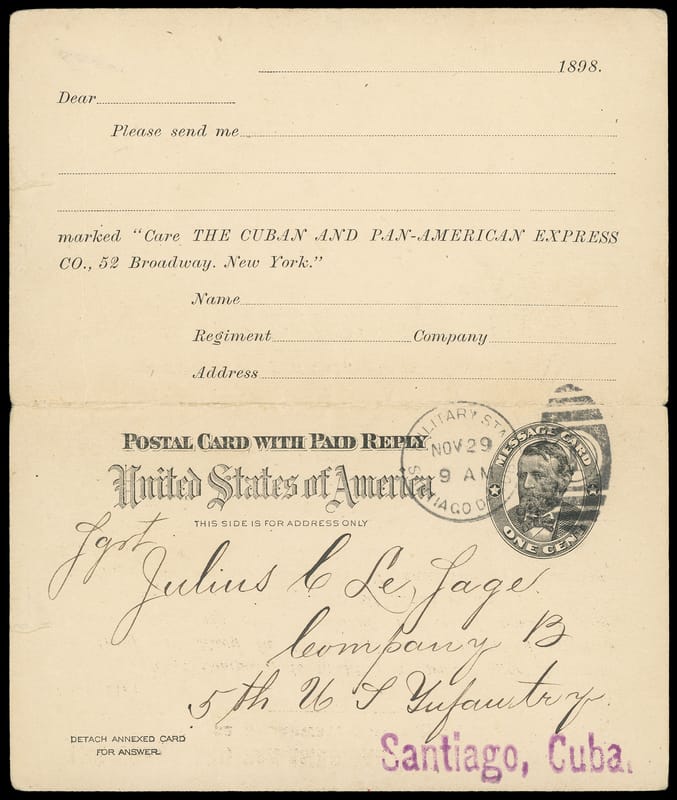 1898.
Dear
Please send me
marked "Care THE CUBAN AND PAN-AMERICAN EXPRESS
CO., 52 Broadway. New York."
Name
Regiment Company
Address
POSTAL CARD WITH PAID REPLY
United States of America
THIS SIDE IS FOR ADDRESS ONLY
MILITARY STA
NOV 29
9 AM
SANTIAGO D
MESSAGE CARD
ONE CENT
Sgt
Julius C Le Sage.
Company B
5th U S Infantry.
DETACH ANNEXED CARD
FOR ANSWER.
Santiago, Cuba.